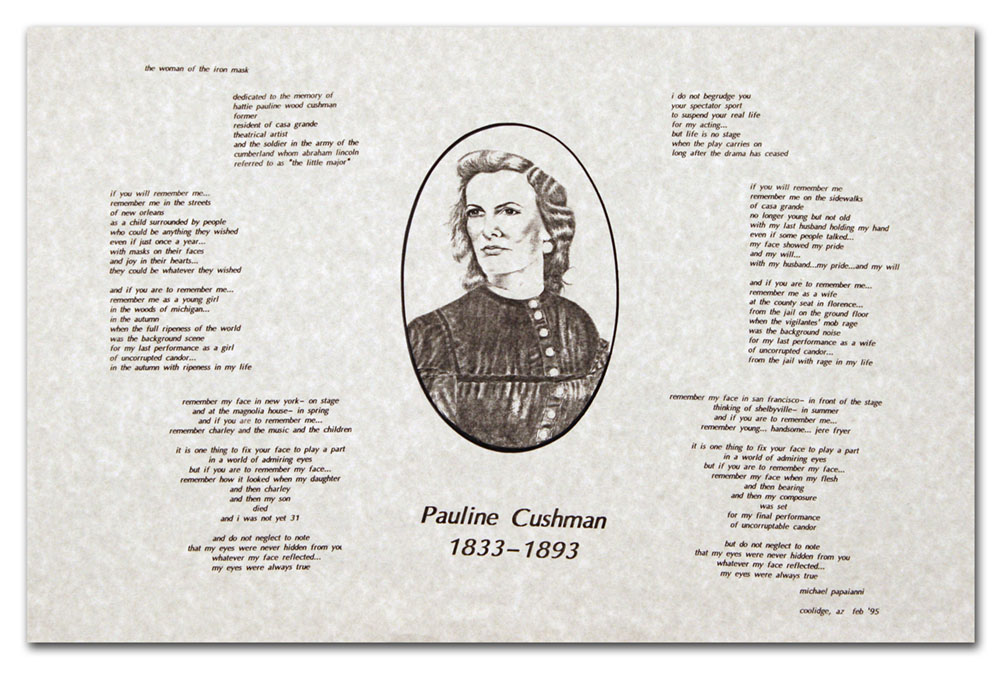 the woman of the iron mask
dedicated to the memory of
hattie pauline wood cushman
former
resident of casa grande
theatrical artist
and the soldier in the army of the
cumberland whom abraham lincoln
referred to as "the little major"
if you will remember me...
remember me in the streets
of new orleans
as a child surrounded by people
who could be anything they wished
even if just once a year...
with masks on their faces
and joy in their hearts...
they could be whatever they wished
and if you are to remember me...
remember me as a young girl
in the woods of michigan...
in the autumn
when the full ripeness of the world
was the background scene
for my last performance as a girl
of uncorrupted candor...
in the autumn with ripeness in my life
remember my face in new york- on stage
and at the magnolia house- in spring
and if you are to remember me...
remember charley and the music and the children
it is one thing to fix your face to play a part
in a world of admiring eyes
but if you are to remember my face...
remember how it looked when my daughter
and then charley
and then my son
died
and i was not yet 31
and do not neglect to note
that my eyes were never hidden from you
whatever my face reflected...
my eyes were always true
Pauline Cushman
1833-1893
i do not begrudge you
your spectator sport
to suspend your real life
for my acting...
but life is no stage
when the play carries on
long after the drama has ceased
if you will remember me
remember me on the sidewalks
of casa grande
no longer young but not old
with my last husband holding my hand
even if some people talked...
my face showed my pride
and my will...
with my husband...my pride...and my will
and if you are to remember me...
remember me as a wife
at the county seat in florence...
from the jail on the ground floor
when the vigilantes' mob rage
was the background noise
for my last performance as a wife
of uncorrupted candor...
from the jail with rage in my life
remember my face in san francisco- in front of the stage
thinking of shelbyville- in summer
and if you are to remember me...
remember young... handsome... jere fryer
it is one thing to fix your face to play a part
in a world of admiring eyes
but if you are to remember my face...
remember my face when my flesh
and then bearing
and then my composure
was set
for my final performance
of uncorruptable candor
but do not neglect to note
that my eyes were never hidden from you
whatever my face reflected...
my eyes were always true
michael papaianni
coolidge, az feb '95